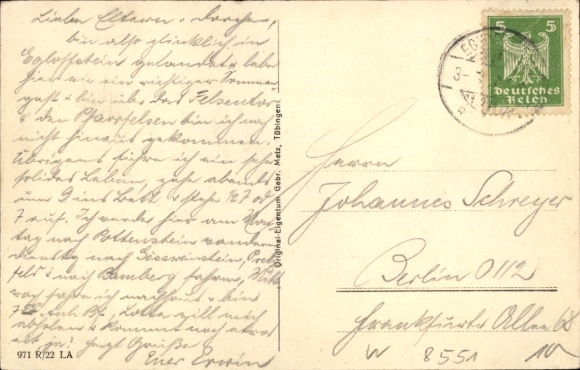 Lieben Eltern u. Dorchen,
bin also glücklich in
Egloffstein gelandet u. lebe
hier wie ein richtiger Sommer
gast u. bin über das Felsentor
u. den Pfarrfelsen bin ich noch
nicht hinaus gekommen.
Übrigens führe ich ein sehr
solides Leben, gehe abends
um 9 ins Bett u. stehe 1/2 7 od
7 auf. Ich werde hier am Mon
tag nach Pottenstein wandern
dienstag nach Gössweinstein,
u. nach Bamberg fahren, Mitt
woch fahre ich nachhaus u. bin
7 Anh. Bf. Lotte will mich
abholen u. kommt noch etwas
mit ja! Herzl Grüße
Euer Erwin
971 R/22 LA
Original-Eigentum Gebr. Metz, Tübingen
5 5
Deutsches
Reich
Herrn
Johannes Schreyer
Berlin O 112
Frankfurter Allee
8551